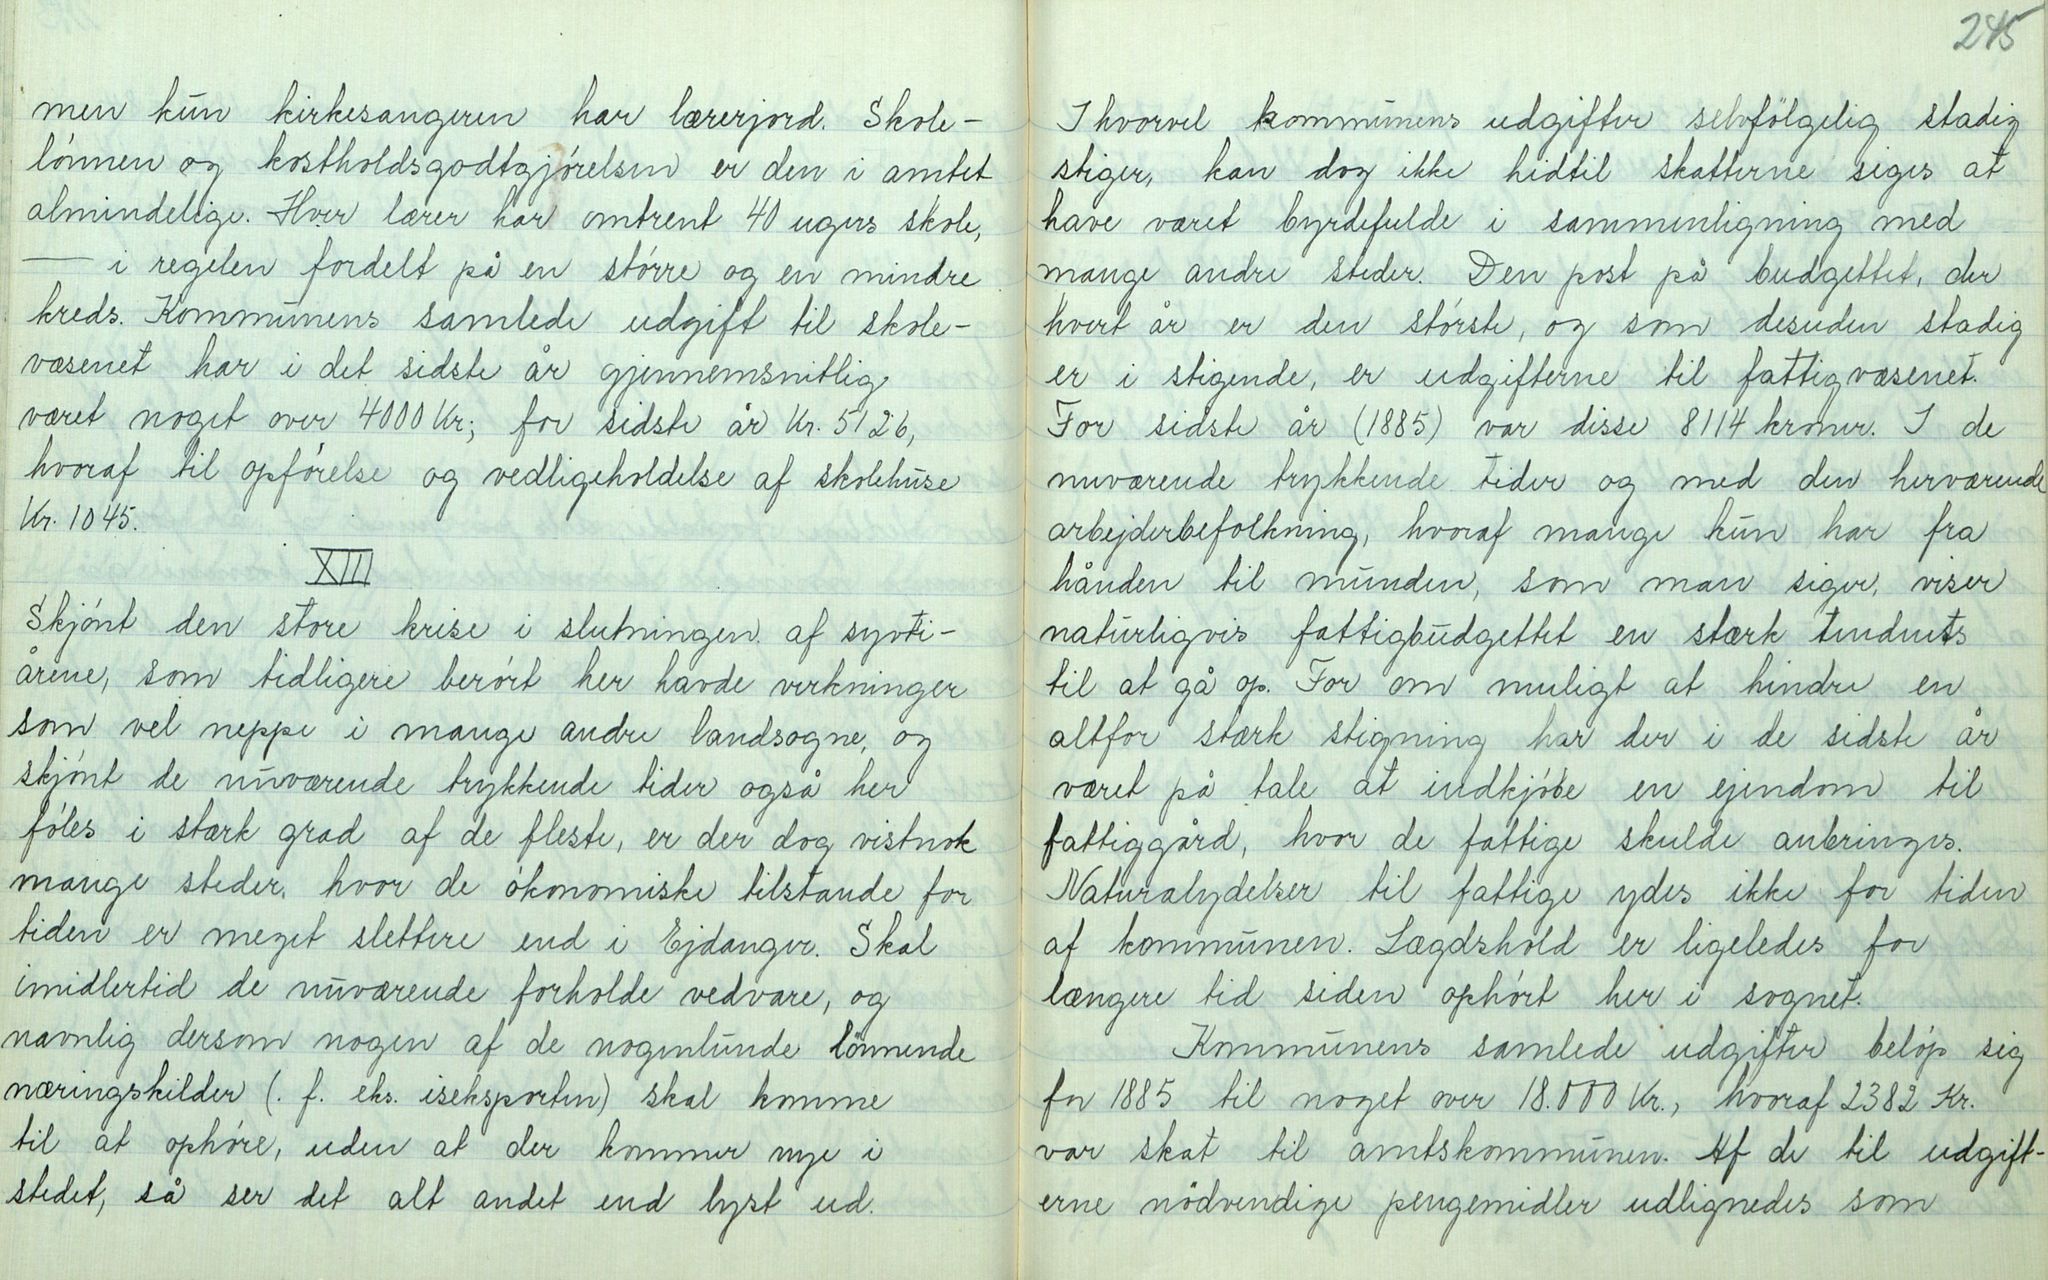 men kun kirkesangeren har lærerjord. Skole-
lónnen og kostholdsgodtgjórelsen er den i amtet
almindelige. Hver lærer har omtrent 40 ugers skole,
— i regelen fordelt på en større og en mindre
kreds. Kommunens samlede udgift til skole-
væsenet har i det sidste år gjennemsnitlig
været noget over 4000 Kr; for sidste år Kr. 5126,
hvoraf til opførelse og vedligeholdelse af skolehuse
Kr. 1045.
XIII
Skjónt den store krise i slutningen af sytti-
årene, som tidligere berórt her havde virkninger
som vel neppe i mange andre landsogne, og
skjónt de nuværende trykkende tider også her
fóles i stærk grad af de fleste, er der dog vistnok
mange steder, hvor de ókonomiske tilstande for
tiden er meget slettere end i Ejdanger. Skal
imidlertid de nuværende forholde vedvare, og
navnlig dersom nogen af de nogenlunde lönnende
næringskilder (. f. eks. iseksporten) skal komme
til at ophóre, uden at der kommer nye i
stedet, så ser det alt andet end lyst ud.
245
Ihvorvel kommunens udgifter selvfölgelig stadig
stiger, kan dog ikke hidtil skatterne siges at
have været byrdefulde i sammenligning med
mange andre steder. Den post på budgettet, der
hvert år er den stórste, og som desuden stadig
er i stigende, er udgifterne til fattigvæsenet.
For sidste år (1885) var disse 8114 kroner. I de
nuværende trykkende tider og med den herværende
arbejderbefolkning, hvoraf mange kun har fra
hånden til munden, som man siger, viser
naturligvis fattigbudgettet en stærk tendents
til at gå op. For om muligt at hindre en
altfor stærk stigning har der i de sidste år
været på tale at indkjóbe en ejendom til
fattiggård, hvor de fattige skulde anbringes.
Naturalydelser til fattige ydes ikke for tiden
af kommunen. Lægdshold er ligeledes for
længere tid siden ophórt her i sognet.
Kommunens samlede udgifter belóp sig
for 1885 til noget over 18.000 Kr., hvoraf 2382 Kr.
var skat til amtskommunen. Af de til udgift-
erne nödvendige pengemidler udlignedes som